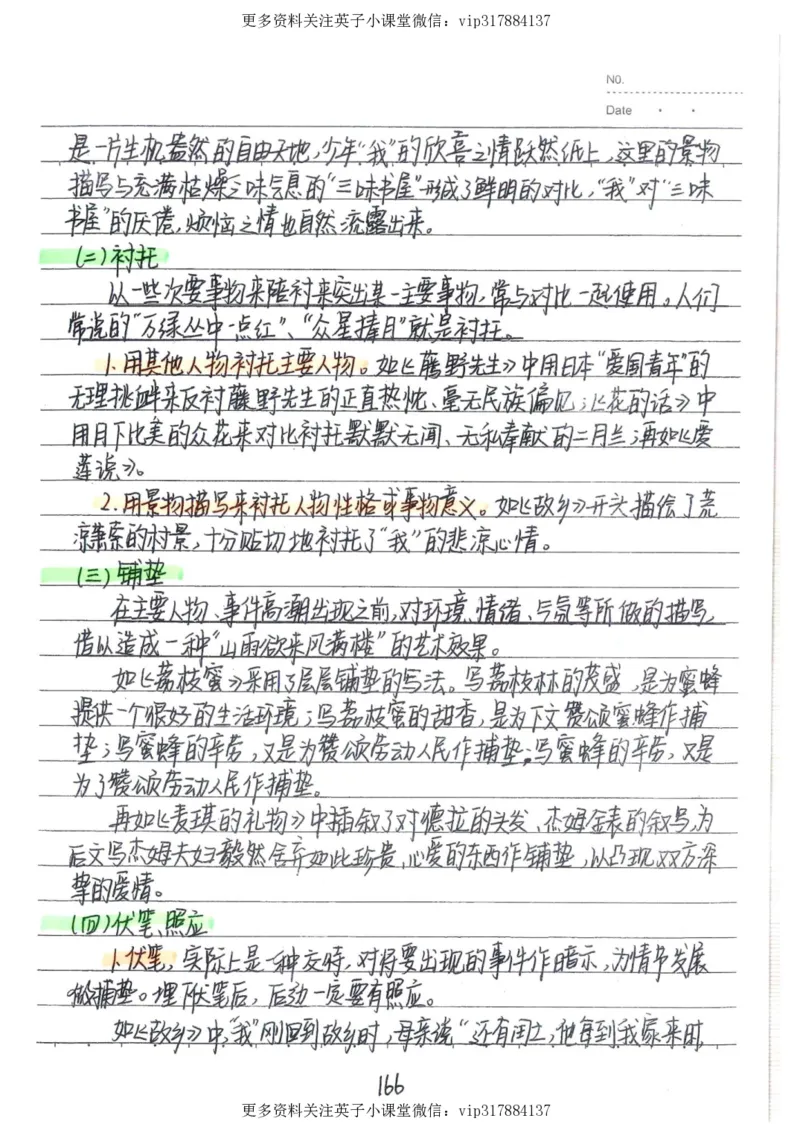 更多资料关注英子小课堂微信：vip317884137
No.
Date
是一片生机盎然的自由天地,少年"我"的欣喜之情跃然纸上,这里的景物
描写与充满枯燥之味气息的"三味书屋"形成了鲜明的对比,"我"对"三味
书屋"的厌倦,烦恼之情也自然流露出来。
(二)衬托
以一些次要事物来陪衬来突出某一主要事物,常与对比一起使用。人们
常说的"万绿丛中一点红"、"众星捧月"就是衬托。
1.用其他人物衬托主要人物。如《藤野先生》中用日本"爱国青年"的
无理挑衅来反衬藤野先生的正直热忱、毫无民族偏见;《花的话》中
用月下比美的众花来对比衬托默默无闻、无私奉献的二月兰;再如《爱
莲说》。
2.用景物描写来衬托人物性格或事物意义。如《故乡》开头描绘了荒
凉萧索的村景,十分贴切地衬托了"我"的悲凉心情。
(三)铺垫
在主要人物、事件高潮出现之前,对环境、情绪、气氛等所做的描写,
借以造成一种"山雨欲来风满楼"的艺术效果。
如《荔枝蜜》采用了层层铺垫的写法。写荔枝林的茂盛,是为蜜蜂
提供一个很好的生活环境;写荔枝蜜的甜香,是为下文赞颂蜜蜂作捕
垫;写蜜蜂的辛劳,又是为赞颂劳动人民作捕垫;写蜜蜂的辛劳,又是
为了赞颂劳动人民作捕垫。
再如《麦琪的礼物》中插叙了对德拉的头发、杰姆金表的叙写,为
后文写杰姆夫妇毅然舍弃如此珍贵、心爱的东西作铺垫,以凸现双方深
挚的爱情。
(四)伏笔、照应
1.伏笔,实际上是一种交待,对将要出现的事件作暗示,为情节发展
做捕垫。埋下伏笔后,后边一定要有照应。
如《故乡》中,"我"刚回到故乡时,母亲说"还有闰土,他每到我家来时,
166
更多资料关注英子小课堂微信：vip317884137